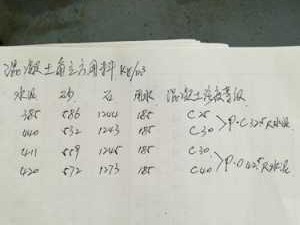 混凝土每立方用料 Kg/m3
水泥 砂 石 用水 混凝土强度等级
385 586 1244 185 C25
440 532 1243 185 C30 >P·C 32.5R水泥
411 559 1245 185 C30
420 572 1273 185 C40 >P·O 42.5R水泥